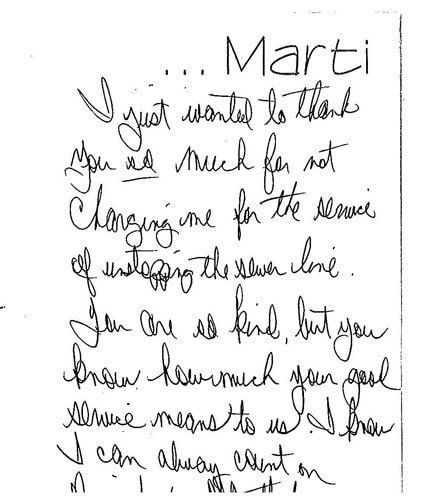 ... Marti
I just wanted to thank
you so much for not
charging me for the service
of unstopping the sewer line.
You are so kind, but you
know how much your good
service means to us. I know
I can always count on